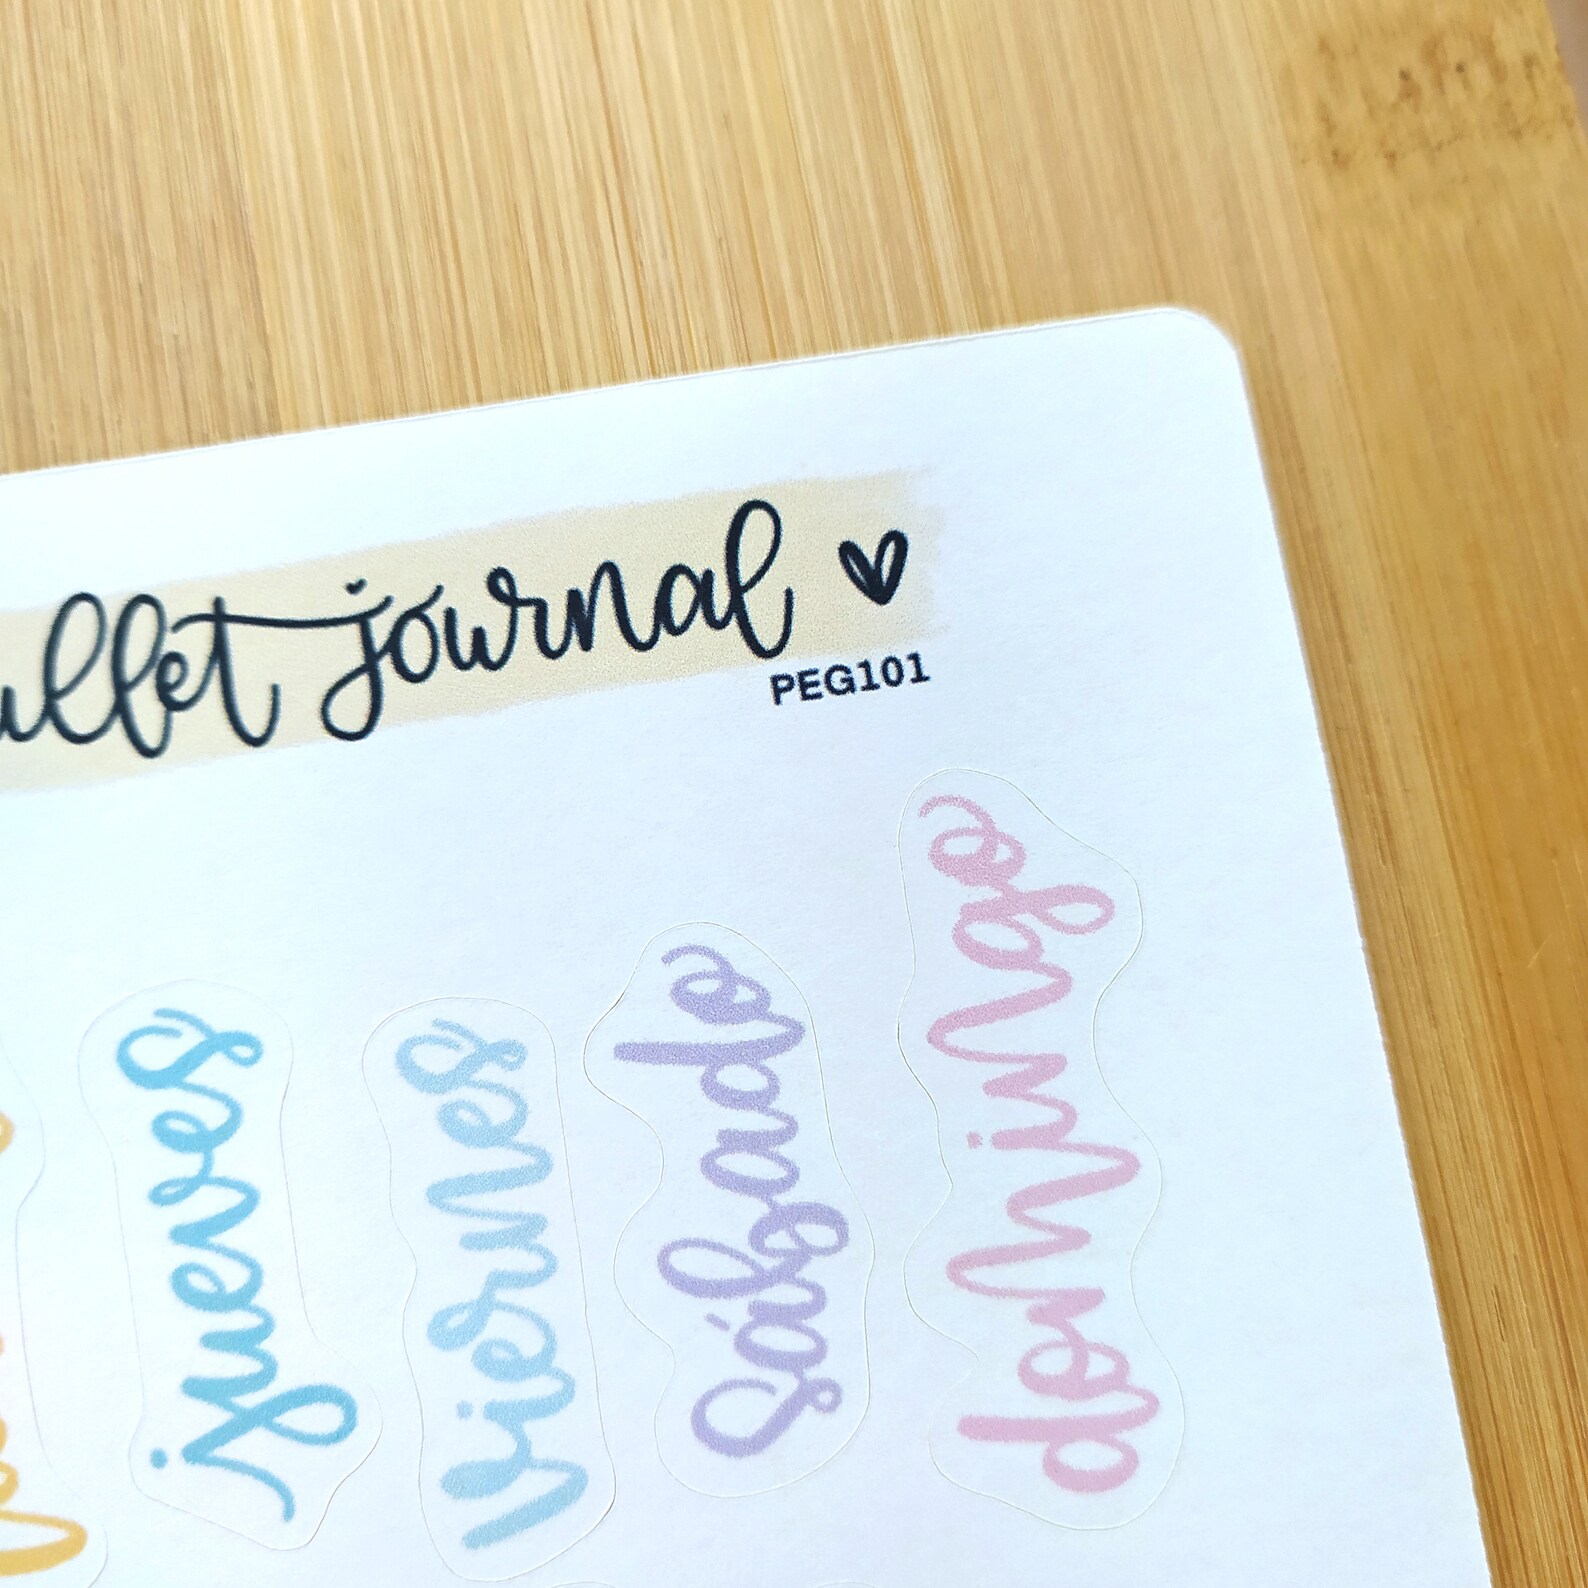 bullet journal
PEG101
jueves
viernes
sábado
domingo